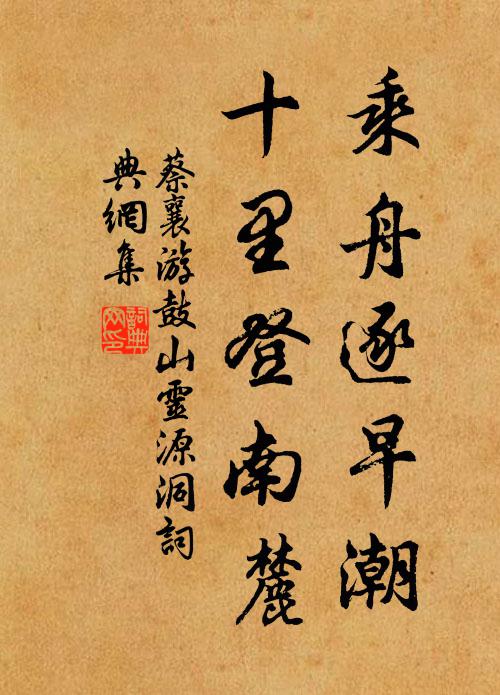 乘舟逐早潮
十里登南麓
蔡襄游鼓山靈源洞詞
典網集
詞典
网印